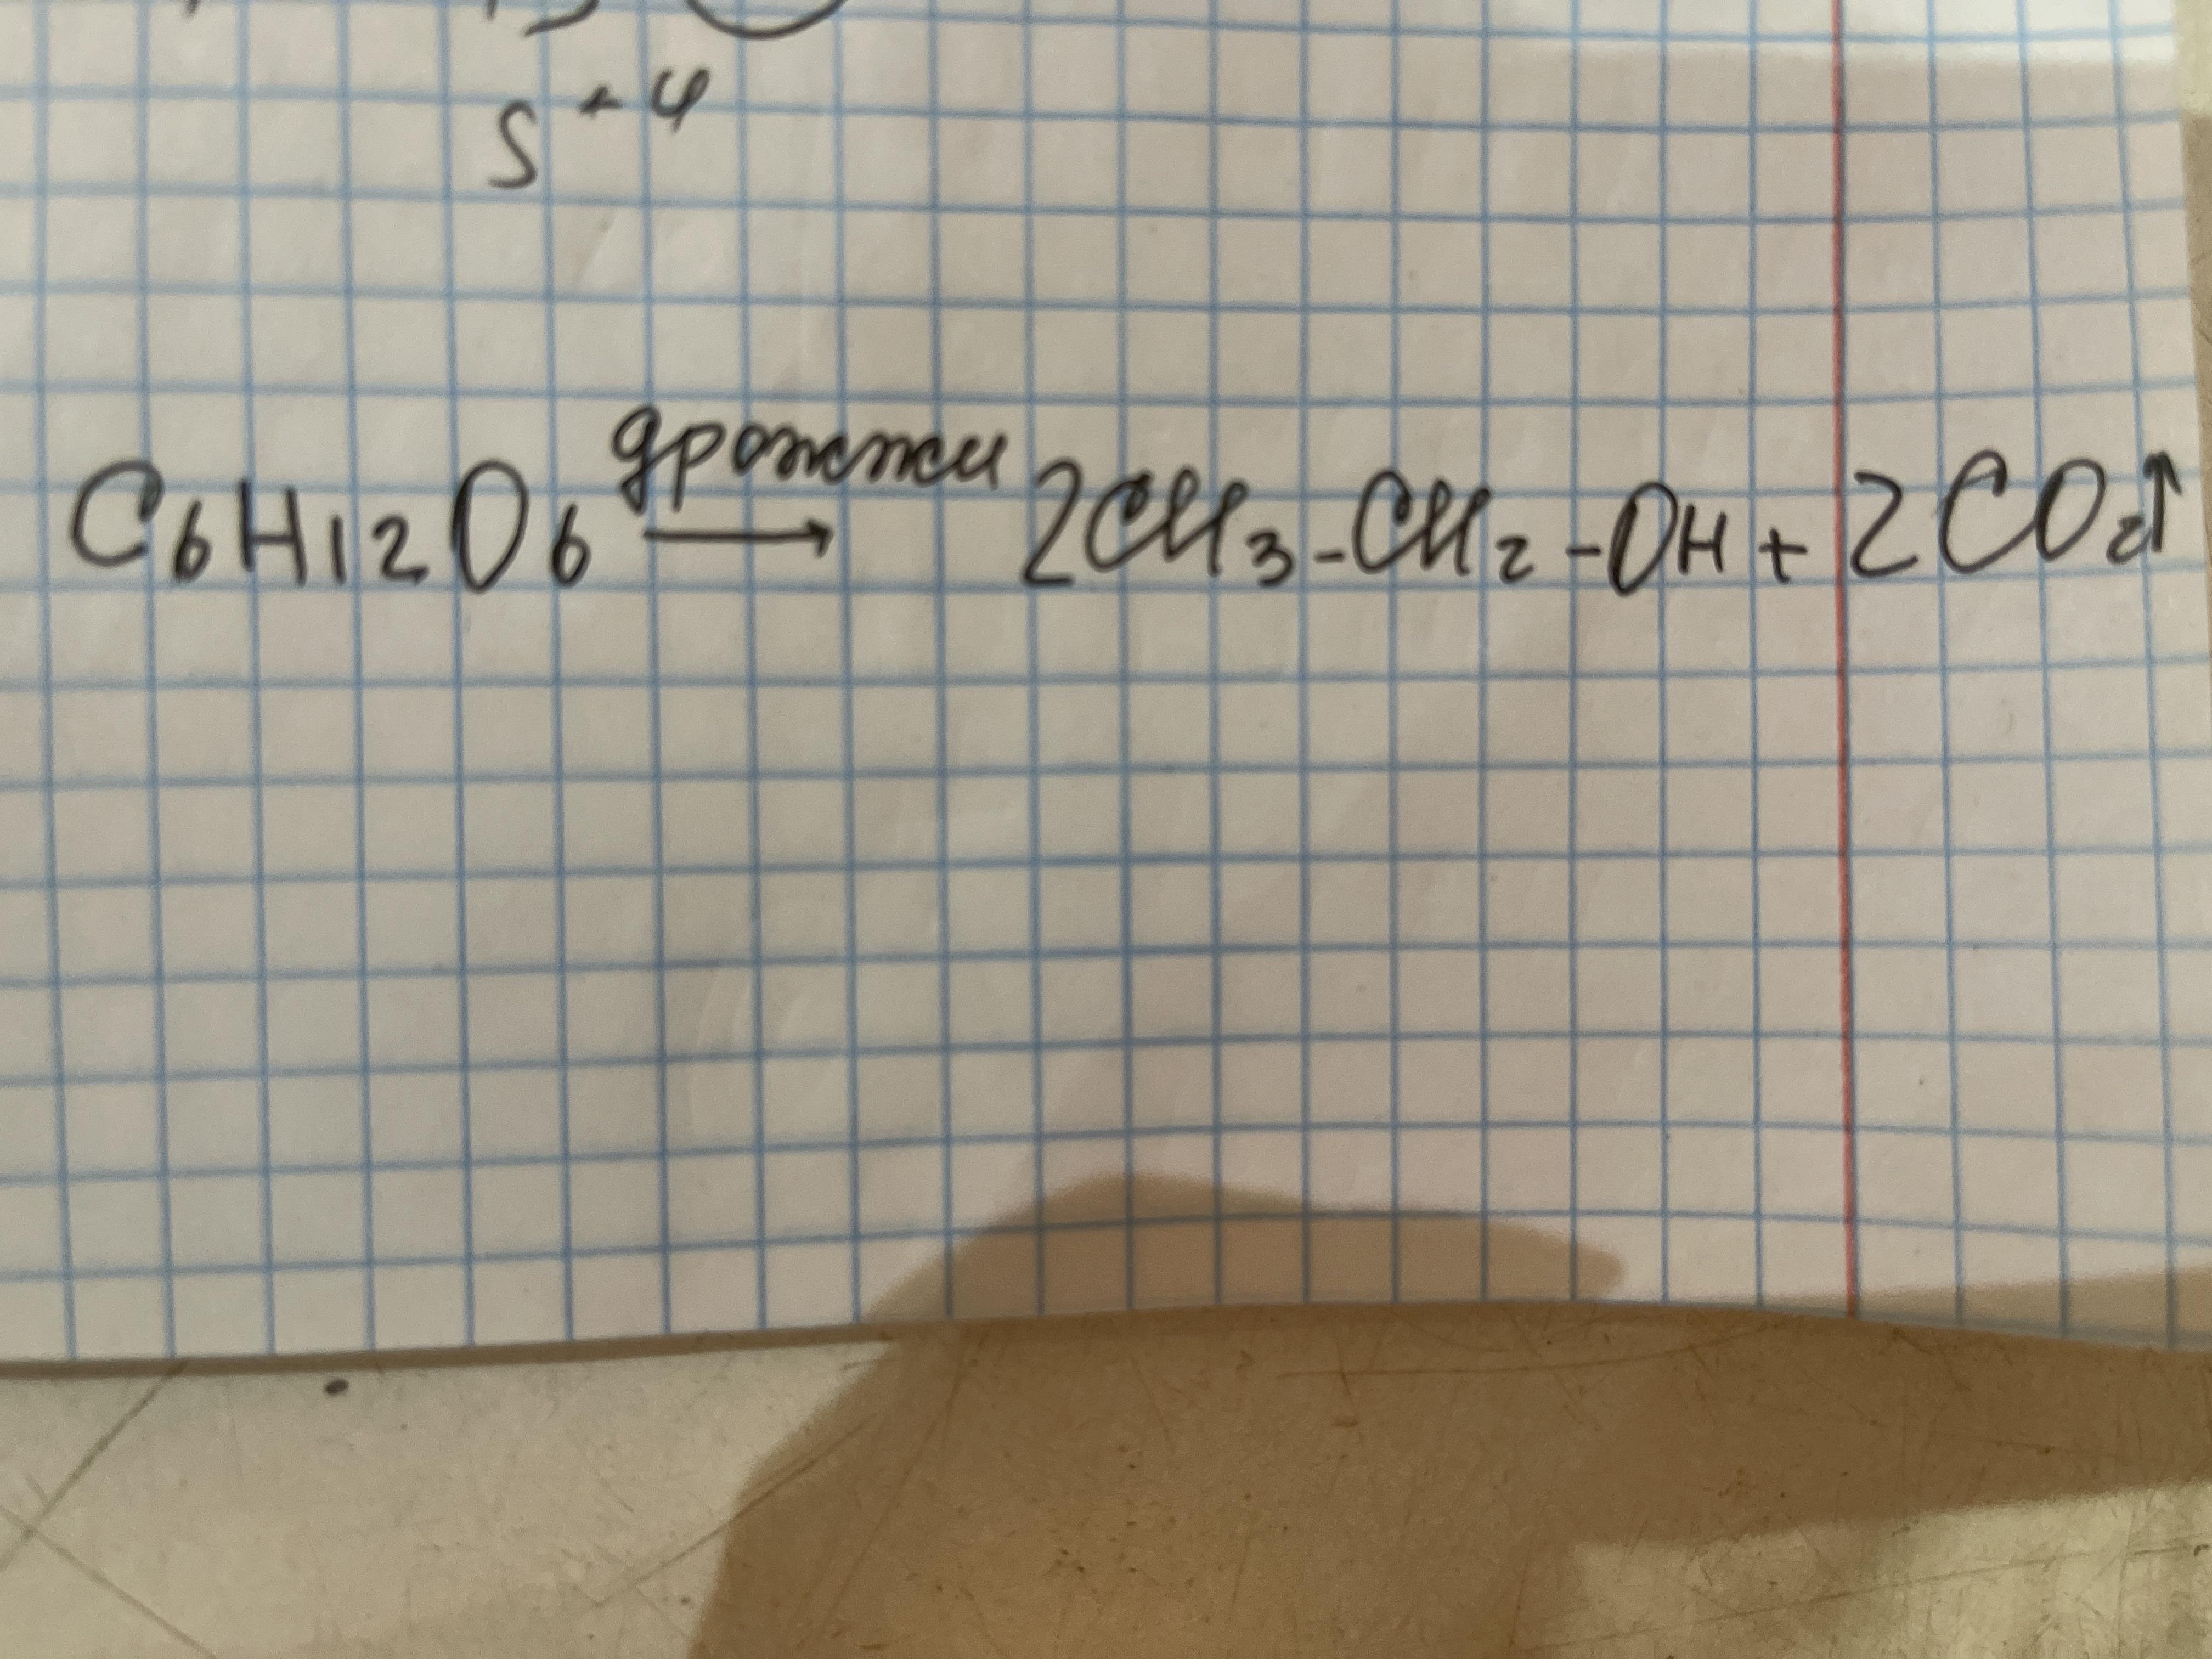 S⁺⁴
C₆H₁₂O₆ дрожжи → 2CH₃-CH₂-OH + 2CO₂↑